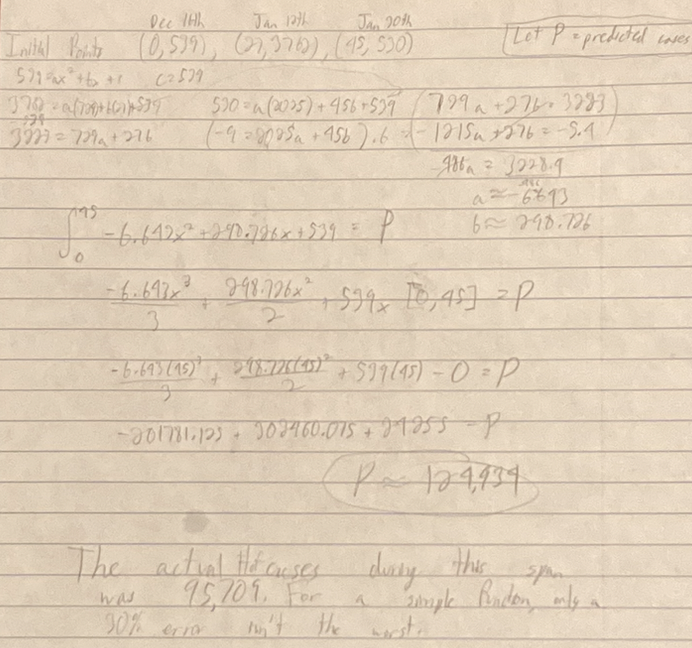 Dec 16th Jan 12th Jan 30th
Initial Points (0,539), (27,3762), (45,530) Let P = predicted cases
539=ax²+b+c c=539
3762=a(729)+b(27)+539 530=a(2025)+45b+539 729a+27b=3223
3223=729a+27b (-9=2025a+45b).6 = -1215a+27b=-5.4
-486a = 3228.4
a≈-6.643
b≈298.726
∫₀⁴⁵ -6.643x²+298.726x+539 = P
-6.643x³/3 + 298.726x²/2 + 539x [0,45] = P
-6.643(45)³/3 + 298.726(45)²/2 + 539(45) - 0 = P
-201781.125 + 302460.075 + 24255 = P
P ≈ 124,934
The actual # of cases during this span
was 95,709. For a simple function, only a
30% error isn't the worst.